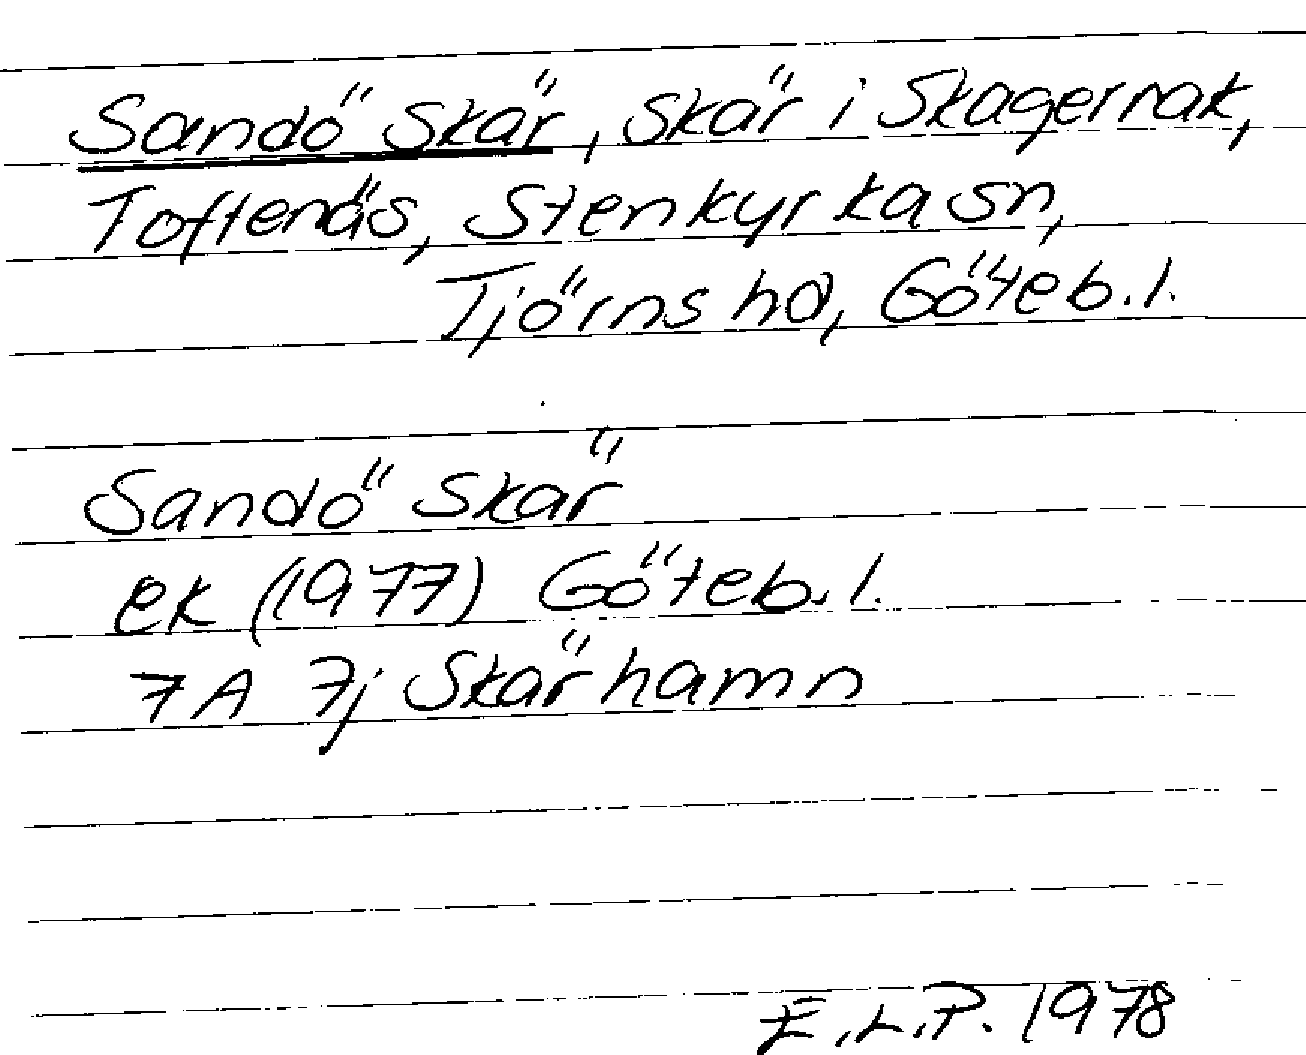 Sandö Skär, skär i Skagernak,
Toftenäs, Stenkyrka sn,
Tjörns hd, Göteb. l.
Sandö skär
ek (1977) Göteb. l.
7A 7j Skärhamn
E.L.P. 1978